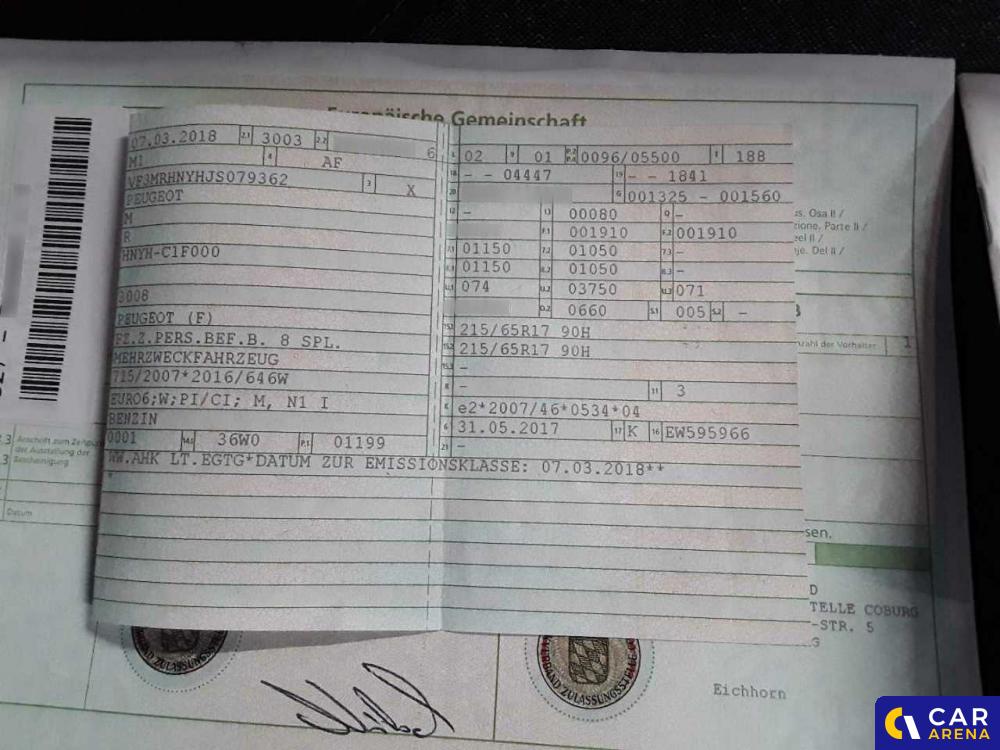 Europäische Gemeinschaft
07.03.2018 2.1 3003 2.2 6
M1 4 AF
VF3MRHNYHJS079362 3 X
PEUGEOT
M
R
HNYH-C1F000
3008
PEUGEOT (F)
FZ.Z.PERS.BEF.B. 8 SPL.
MEHRZWECKFAHRZEUG
715/2007*2016/646W
EURO6;W;PI/CI; M, N1 I
BENZIN
0001 14.1 36W0 P.1 01199
L 02 9 01 P.2 P.4 0096/05500 T 188
18 - - 04447 19 - - 1841
20 G 001325 - 001560
12 - 13 00080 Q -
F.1 001910 F.2 001910
7.1 01150 7.2 01050 7.3 -
8.1 01150 8.2 01050 8.3 -
U.1 074 U.2 03750 U.3 071
O.2 0660 S.1 005 S.2 -
15.1 215/65R17 90H
15.2 215/65R17 90H
15.3 -
R - 11 3
K e2*2007/46*0534*04
6 31.05.2017 17 K 16 EW595966
21 -
WW.AHK LT.EGTG*DATUM ZUR EMISSIONSKLASSE: 07.03.2018**
*
us. Osa II /
zione, Parte II /
eel II /
nje. Del II /
nzahl der Vorhalter 1
Anschrift zum Zeitpun
der Ausstellung der
Bescheinigung
Datum
sen.
D
TELLE COBURG
-STR. 5
G
ZULASSUNGSSTELLE
ZULASSUNGSSTELLE
Eichhorn
CAR
ARENA